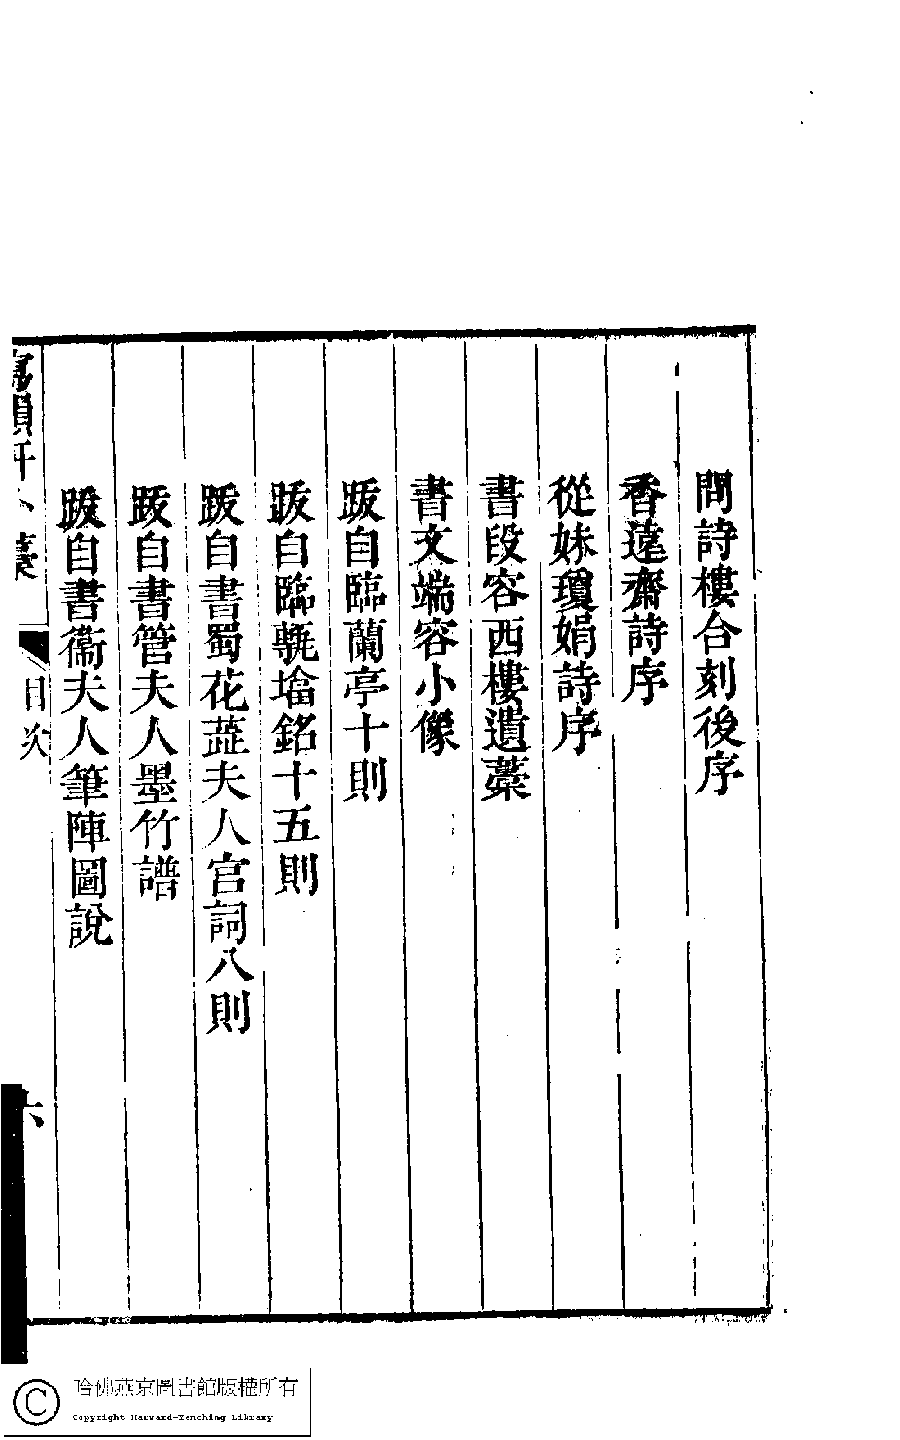 問詩樓合刻後序
香遠齋詩序
從妹瓊娟詩序
書段容西樓遺藁
書文端容小像
跋自臨蘭亭十則
跋自臨甎塔銘十五則
跋自書蜀花蕋夫人宮詞八則
跋自書管夫人墨竹譜
跋自書衞夫人筆陣圖說
寫韻軒小藁 目次 六
哈佛燕京圖書館版權所有
Copyright Harvard-Yenching Library